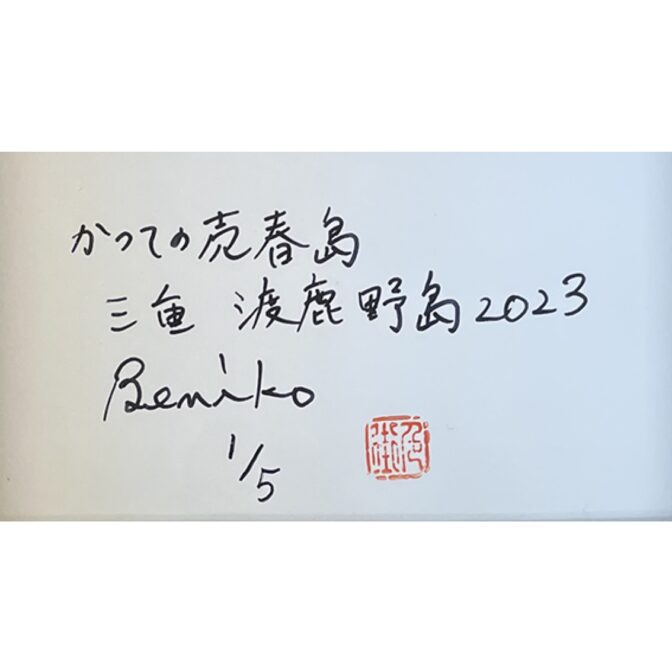 かつての売春島
三重 渡鹿野島2023
Beniko
1/5
色街